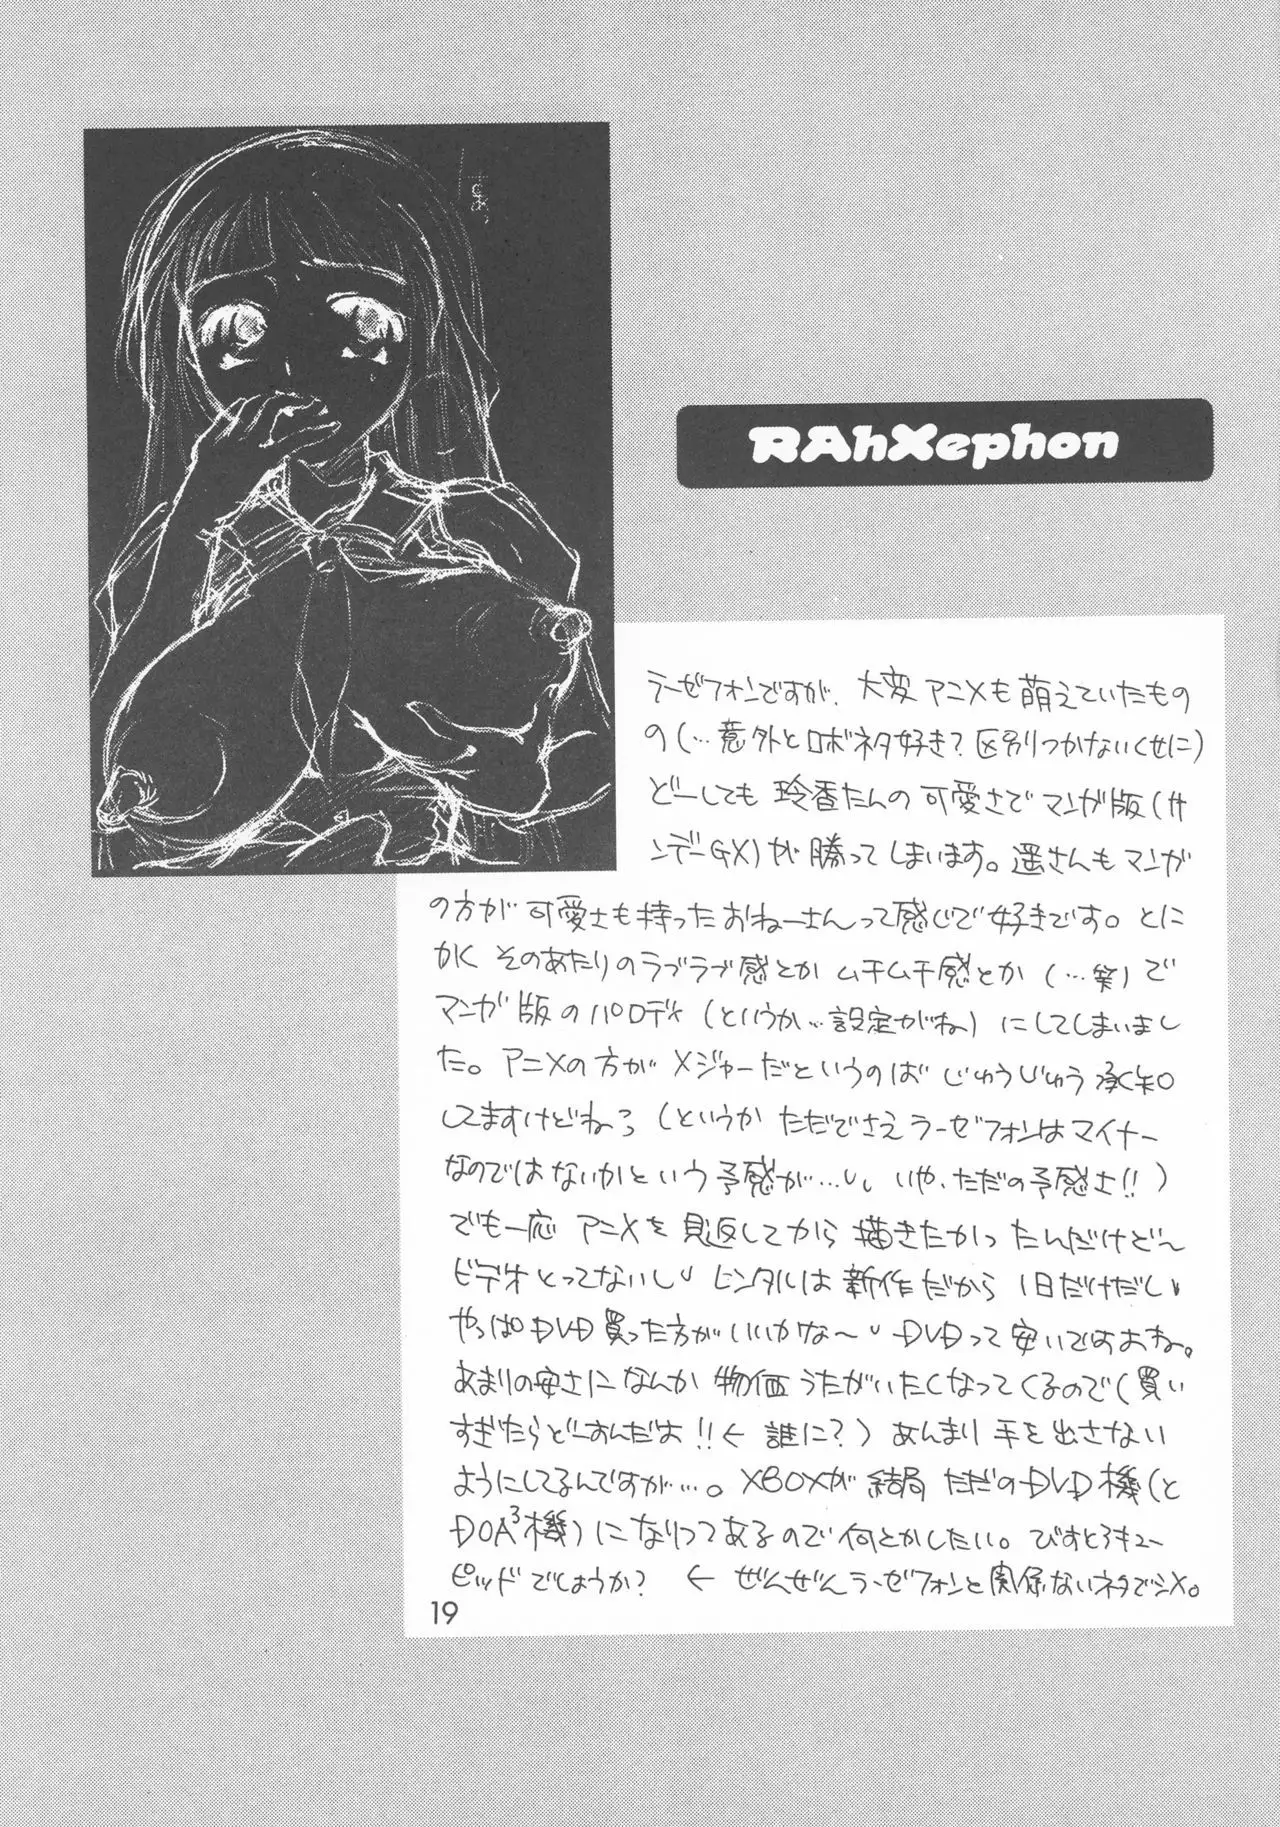 RAhXephon
ラーゼフォンですが、大変アニメも萌えていたもの
の(…意外とロボネタ好き?区別つかないくせに)
どーしても玲香たんの可愛さでマンガ版(サ
ンデーGX)が勝ってしまいます。遥さんもマンガ
の方が可愛さも持ったおねーさんって感じで好きです。とに
かくそのあたりのラブラブ感とかムチムチ感とか(…笑)で
マンガ版のパロディ(というか…設定がね)にしてしまいまし
た。アニメの方がメジャーだというのはじゅうじゅう承知
してますけどねぇ(というかただでさえラーゼフォンはマイナー
なのではないかという予感が…いや、ただの予感さ!!)
でも一応アニメを見返してから描きたかったんだけど〜
ビデオとってないし、レンタルは新作だから1日だけだし、
やっぱDVD買った方がいいかな〜、DVDって安いですよね。
あまりの安さになんか物価うたがいたくなってくるので(買い
すぎたらどーすんだよ!!←誰に?)あんまり手を出さない
ようにしてるんですが…。XBOXが結局ただのDVD機(と
DOA3機)になりつつあるので何とかしたい。びすとろキュー
ピッドでしょうか? ←ぜんぜんラーゼフォンと関係ないネタでシメ。
19